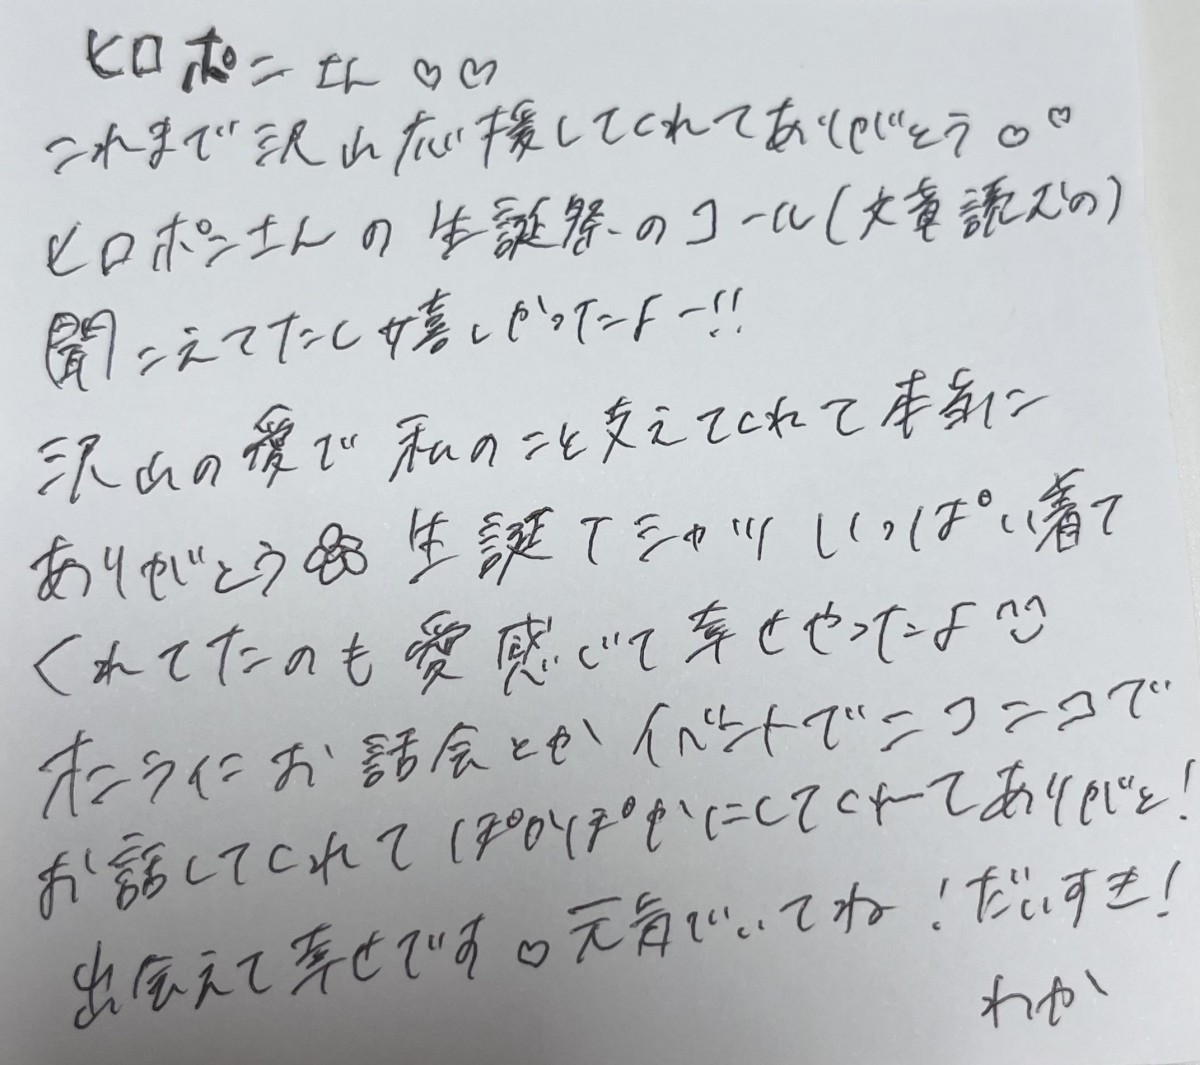 ヒロポンさん♡♡
これまで沢山応援してくれてありがとう♡♡
ヒロポンさんの生誕祭のコール(文章読んだの)
聞こえてたし嬉しかったよー!!
沢山の愛で私のこと支えてくれて本気に
ありがとう 生誕Tシャツいっぱい着て
くれてたのも愛感じて幸せやったよ
オンラインお話会とかイベントでニコニコで
お話してくれてぽかぽかにしてくれてありがと!
出会えて幸せです♡元気でいてね!だいすき!
わか